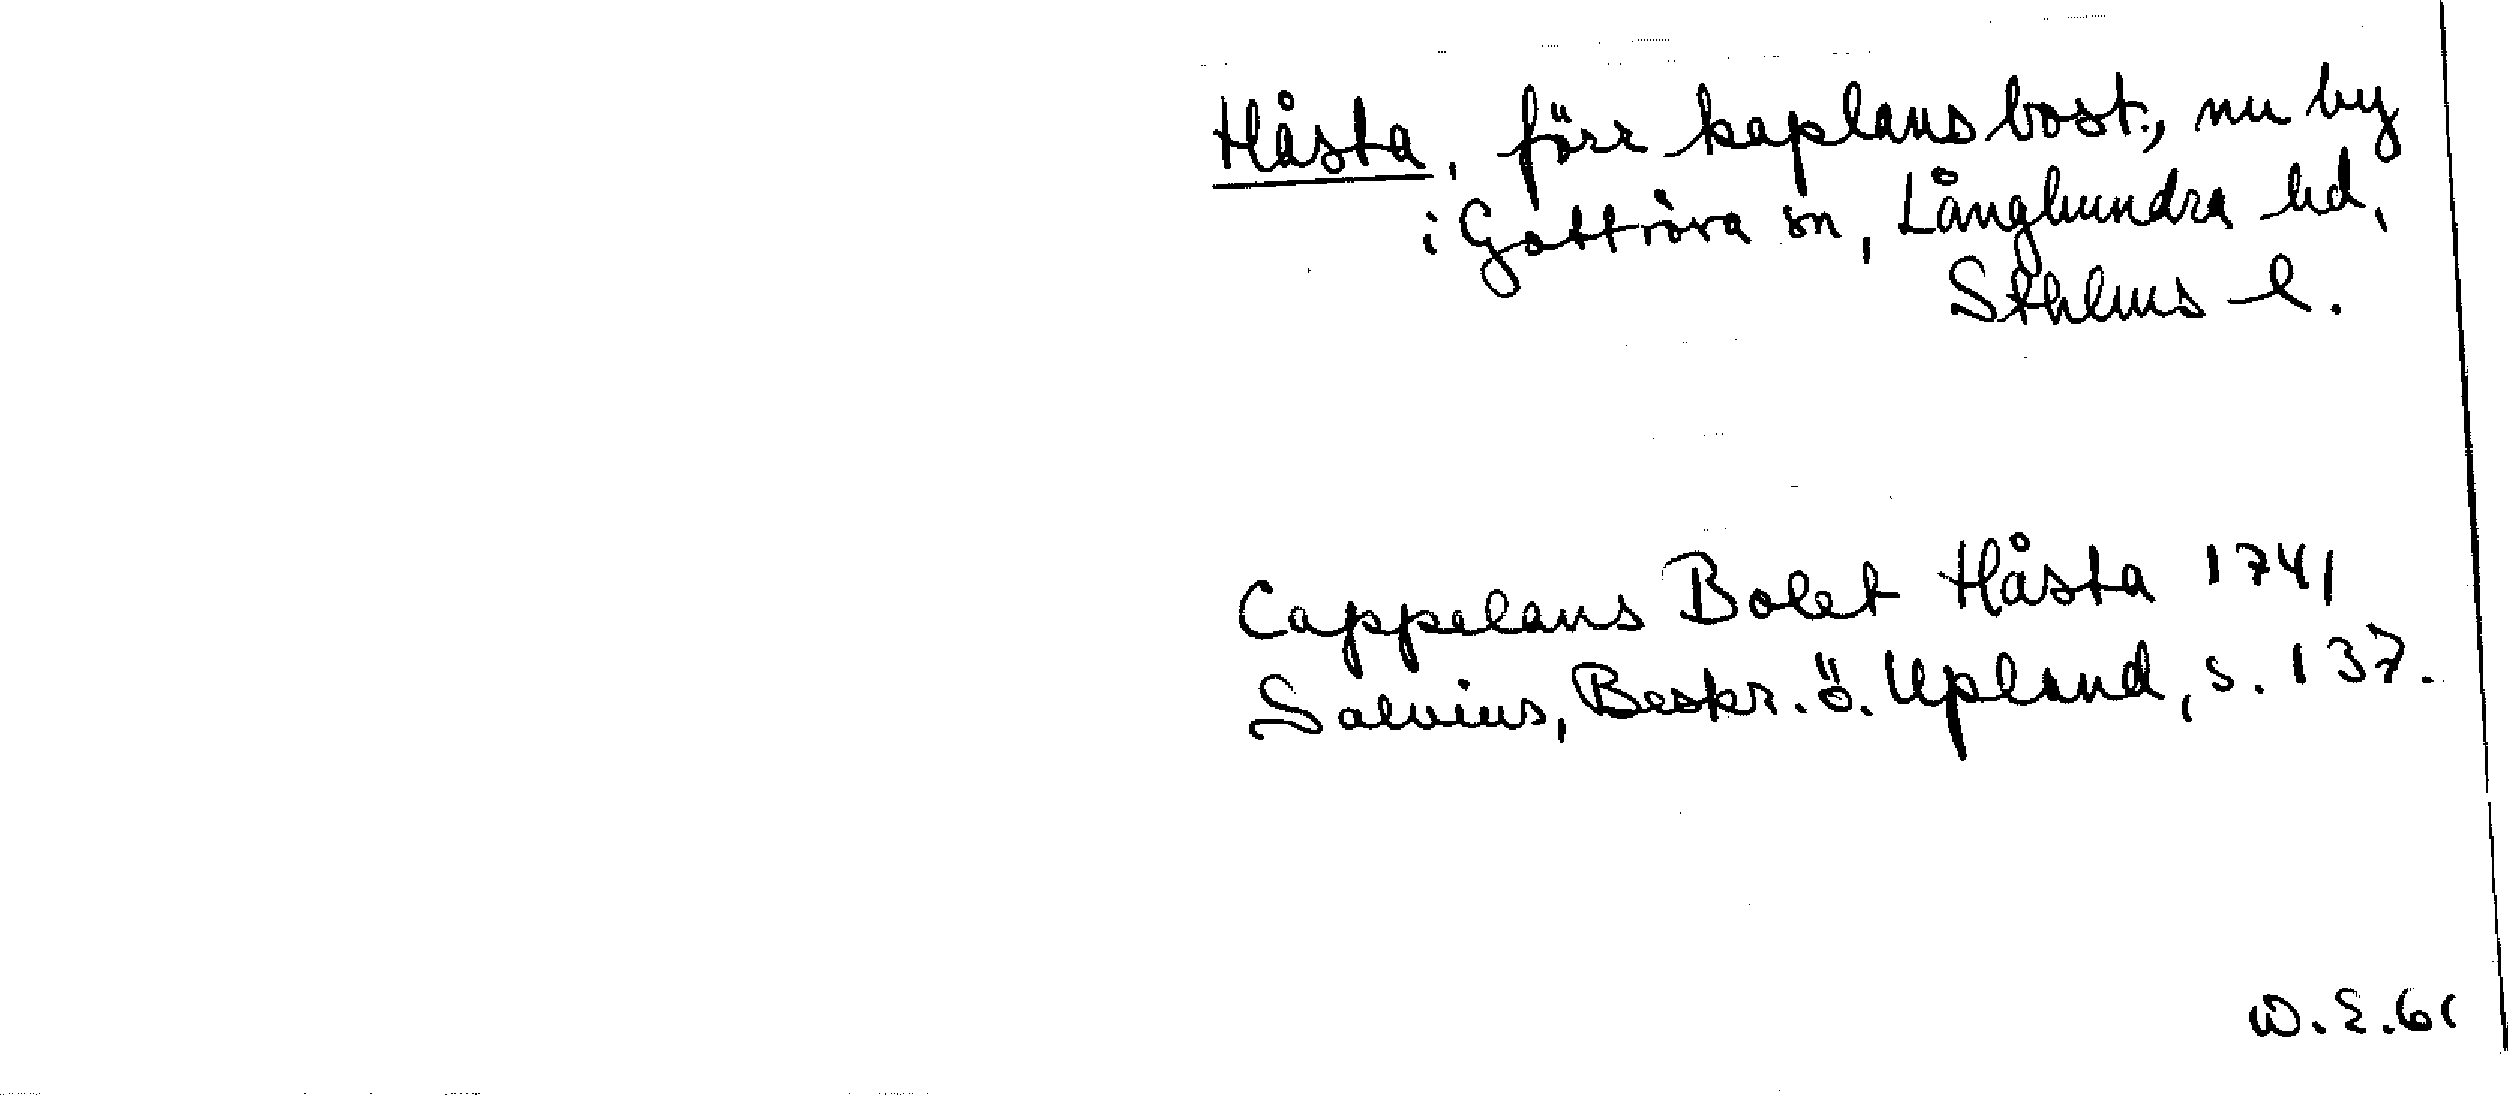 Håsta, förr kaplansbost., nu by
i Gottröra sn, Långhundra hd,
Sthlms l.
Cappelans Bolet Håsta 1741
Salvius, Beskr. ö. Upland, s. 137.
D.S.61